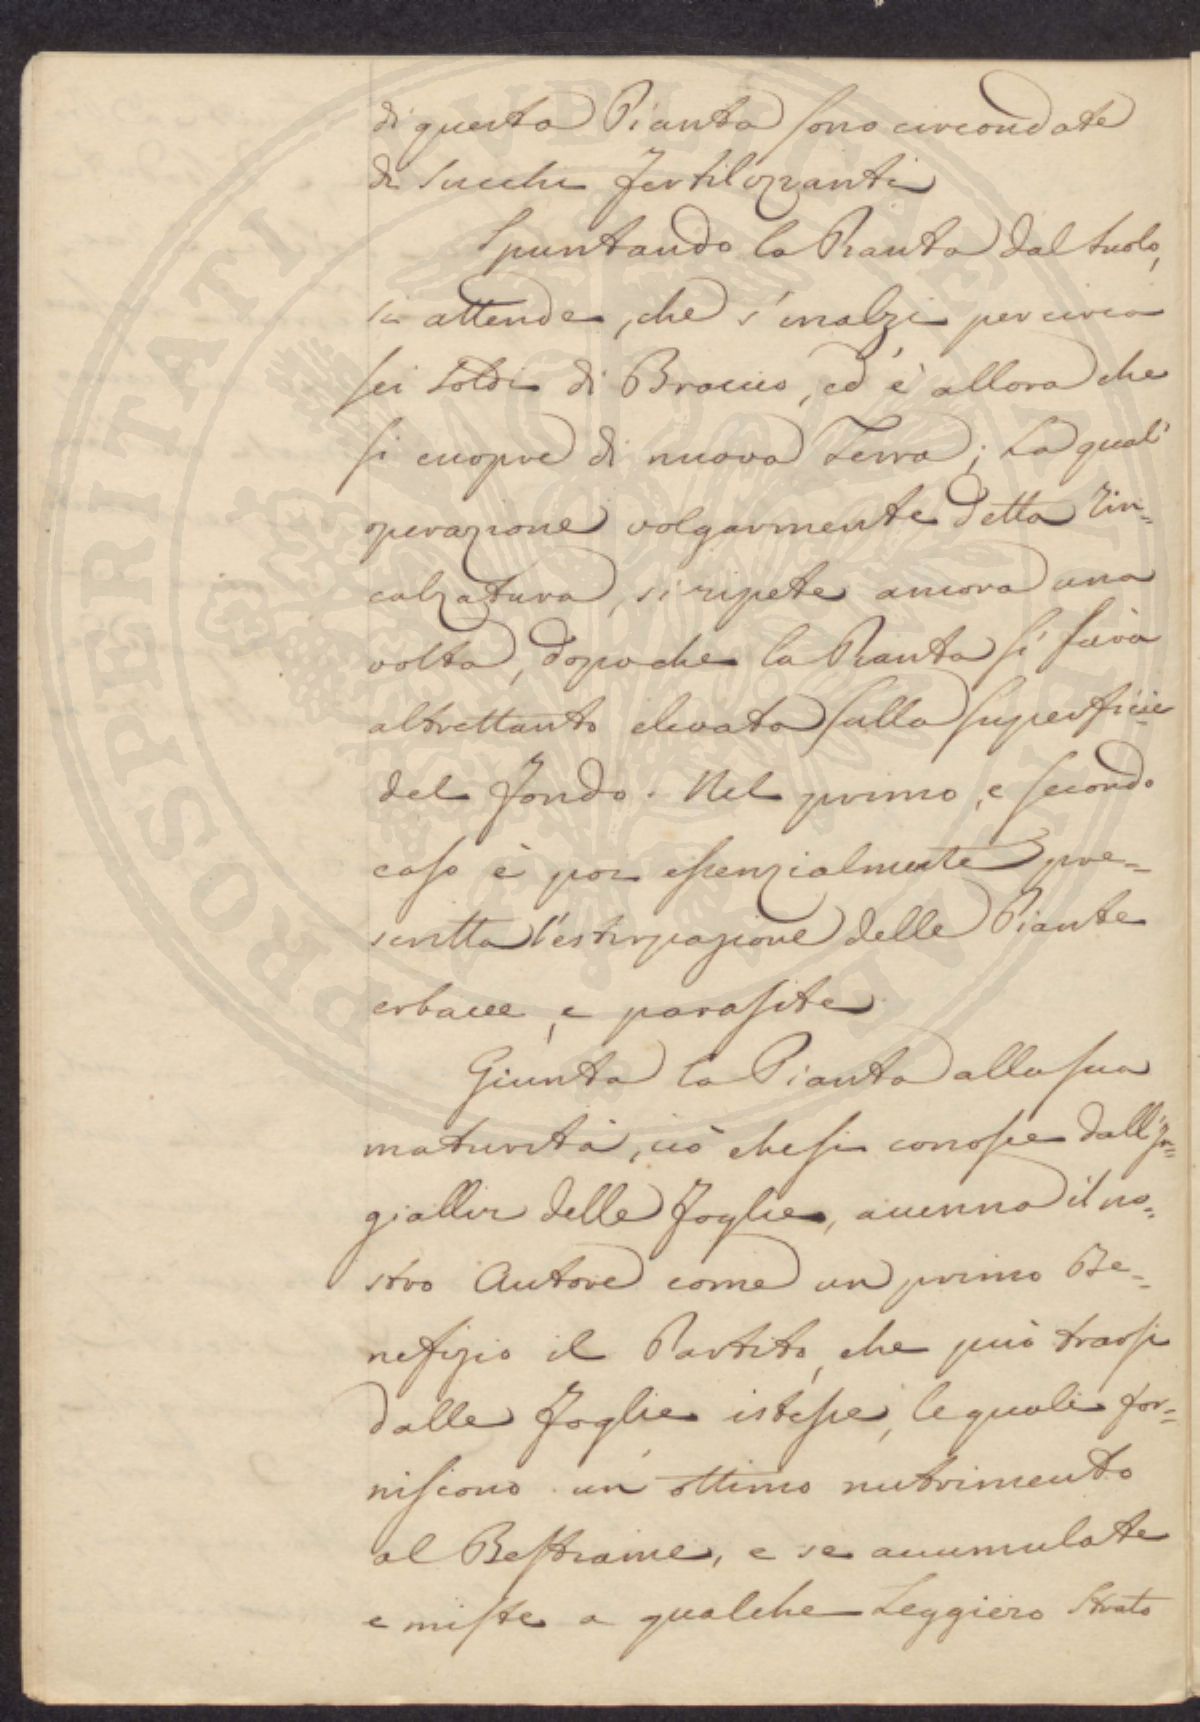 di questa Pianta sono circondate
di Succhi Fertilizzanti
Spuntando la Pianta dal Suolo,
si attende, che s'inalzi per circa
sei Soldi di Braccio, ed è allora che
si cuopre di nuova Terra; La qual'
operazione volgarmente detta Rin=
calzatura, si ripete ancora una
volta, dopo che la Pianta si sarà
altrettanto elevata sulla superficie
del Fondo. Nel primo, e secondo
caso è poi essenzialmente pre=
scritta l'estirpazione delle Piante
erbacee, e parasite
Giunta la Pianta alla sua
maturità, ciò che si conosce dall'In=
giallir delle Foglie, accenna il no=
stro Autore come un primo Be=
nefizio il Partito, che può trarsi
dalle Foglie istesse, le quali for=
niscono un ottimo nutrimento
al Bestiame, e se accumulate
e miste a qualche Leggiero Strato
PROSPERITATI PUBLICAE AUGENDAE